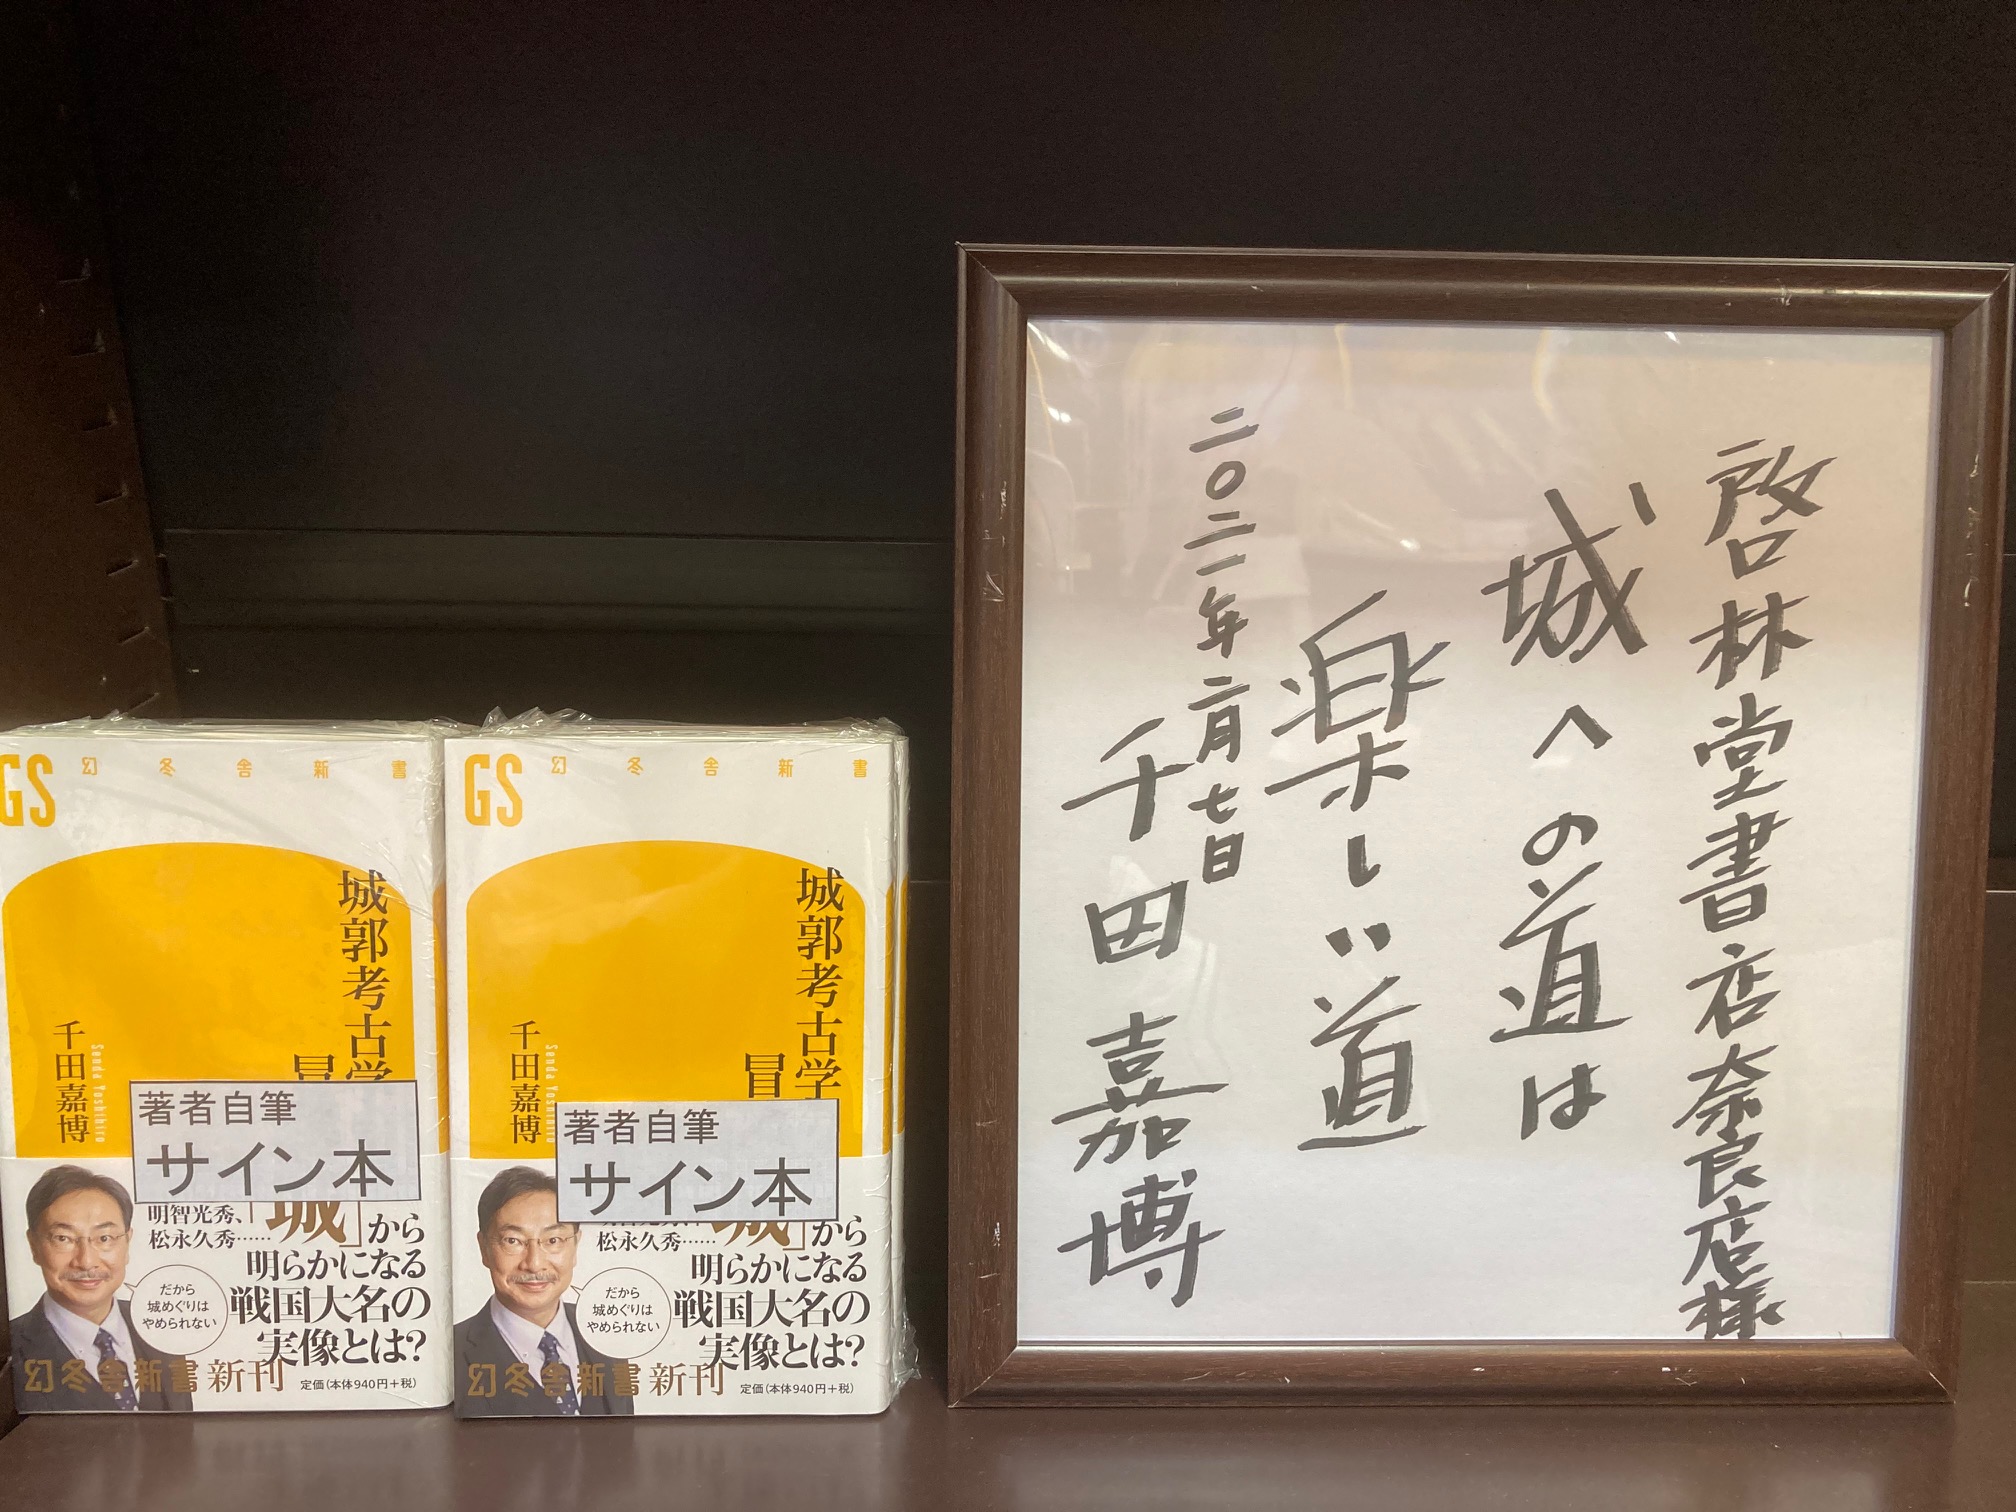 GS 幻冬舎新書
城郭考古学
冒
千田嘉博
Senda Yoshihiro
著者自筆
サイン本
明智光秀、
松永久秀……
「城」から
明らかになる
戦国大名の
実像とは?
だから
城めぐりは
やめられない
幻冬舎新書 新刊
定価(本体940円+税)
GS 幻冬舎新書
城郭考古学
冒
千田嘉博
Senda Yoshihiro
著者自筆
サイン本
松永久秀……
城」から
明らかになる
戦国大名の
実像とは?
だから
城めぐりは
やめられない
幻冬舎新書 新刊
定価(本体940円+税)
啓林堂書店奈良店様
城への道は
楽しい道
二〇二一年二月七日
千田嘉博